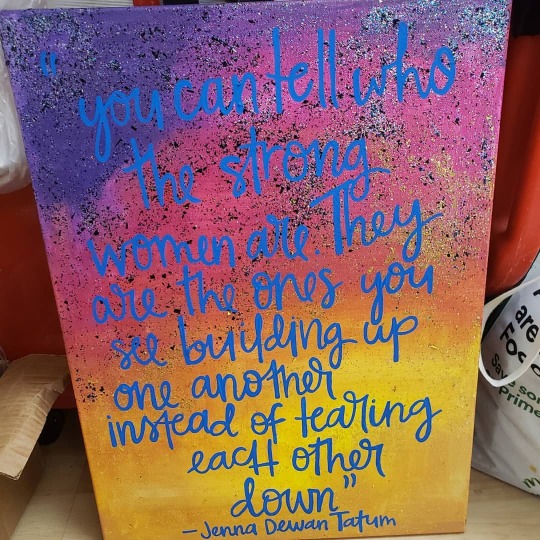 "you can tell who
the strong
women are. They
are the ones you
see building up
one another
instead of tearing
each other
down"
-Jenna Dewan Tatum
are
Prime